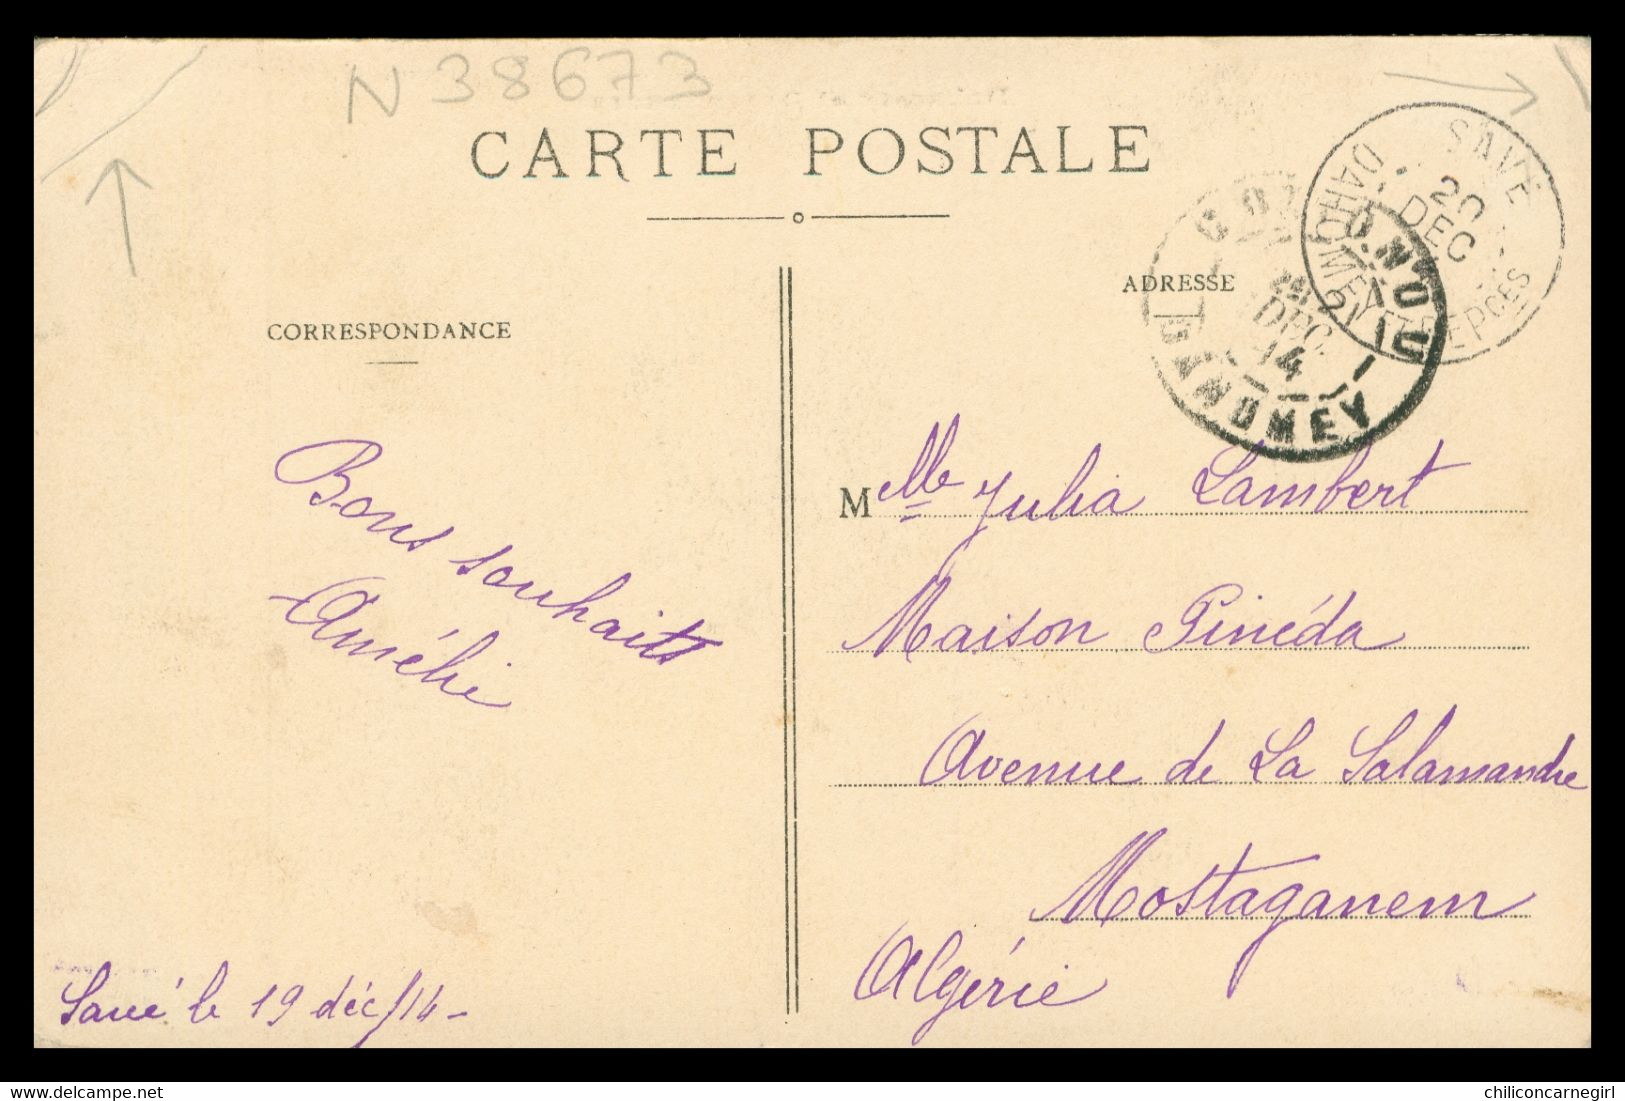 N 38673
CARTE POSTALE
SAVÉ
20
DEC
DAHOMEY ET DEPCES
COTONOU
DEC
14
DAHOMEY
ADRESSE
CORRESPONDANCE
Bons souhaits
Amélie
Savé le 19 déc/14 -
Melle Julia Lambert
Maison Pinéda
Avenue de La Salamandre
Mostaganem
Algérie
delcampe.net
chiliconcarnegirl